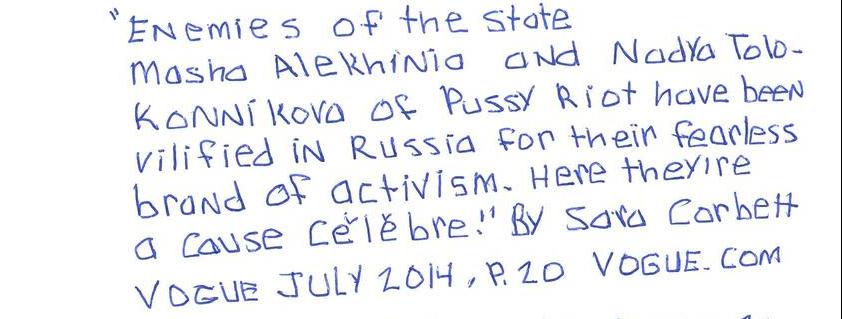 "Enemies of the State
Masha Alekhinia and Nadya Tolo-
Konnikova of Pussy Riot have been
vilified in Russia for their fearless
brand of activism. Here they're
a cause célèbre." By Sara Corbett
VOGUE JULY 2014, P. 20 VOGUE.COM